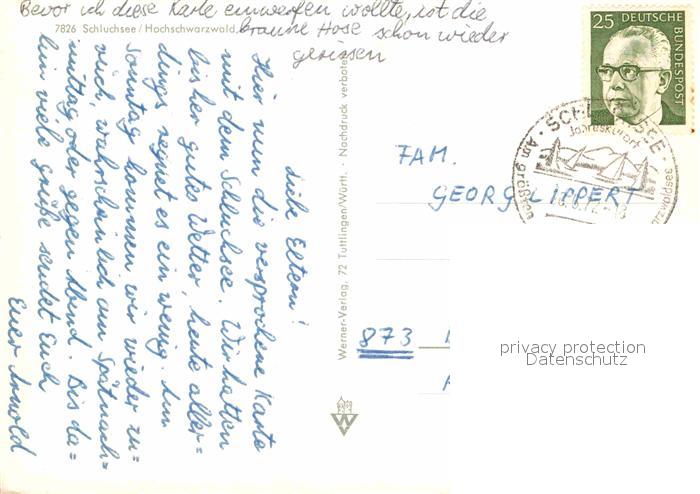 Bevor ich diese Karte einwerfen wollte, ist die
braune Hose schon wieder
gerissen
7826 Schluchsee / Hochschwarzwald,
Liebe Eltern!
Hier nun die versprochene Karte
mit dem Schluchsee. Wir hatten
bisher gutes Wetter, heute aller=
dings regnet es ein wenig. Am
Sonntag kommen wir wieder zu=
rück, wahrscheinlich am Spätnach=
mittag oder gegen Abend. Bis da=
hin viele Grüße sendet Euch
Euer Arnold
Werner-Verlag, 72 Tuttlingen/Württ. · Nachdruck verboten
W
25 DEUTSCHE
BUNDESPOST
Jahreskurort
FAM.
GEORG LIPPERT
873
privacy protection
Datenschutz